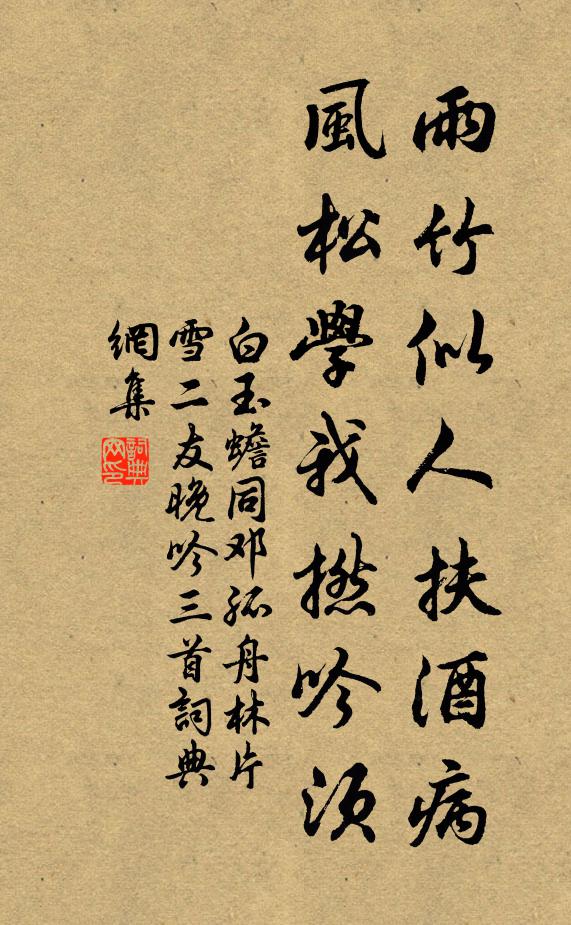 雨竹似人扶酒病
風松學我撚吟須
白玉蟾同邓孤舟林片
雪二友晚吟三首詞典
網集
詞典网印